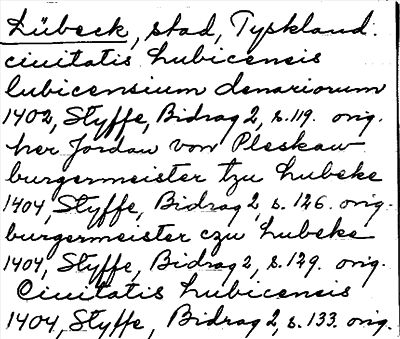 Lübeck, stad, Tyskland.
ciuitatis Lubicensis
lubicensium denariorum
1402, Styffe, Bidrag 2, s. 119. orig.
her Jordan von Pleskaw
burgermeister tzu Lubeke
1404, Styffe, Bidrag 2, s. 126. orig.
burgermeister czu Lubeke
1404, Styffe, Bidrag 2, s. 129. orig.
Ciuitatis Lubicensis
1404, Styffe, Bidrag 2, s. 133. orig.